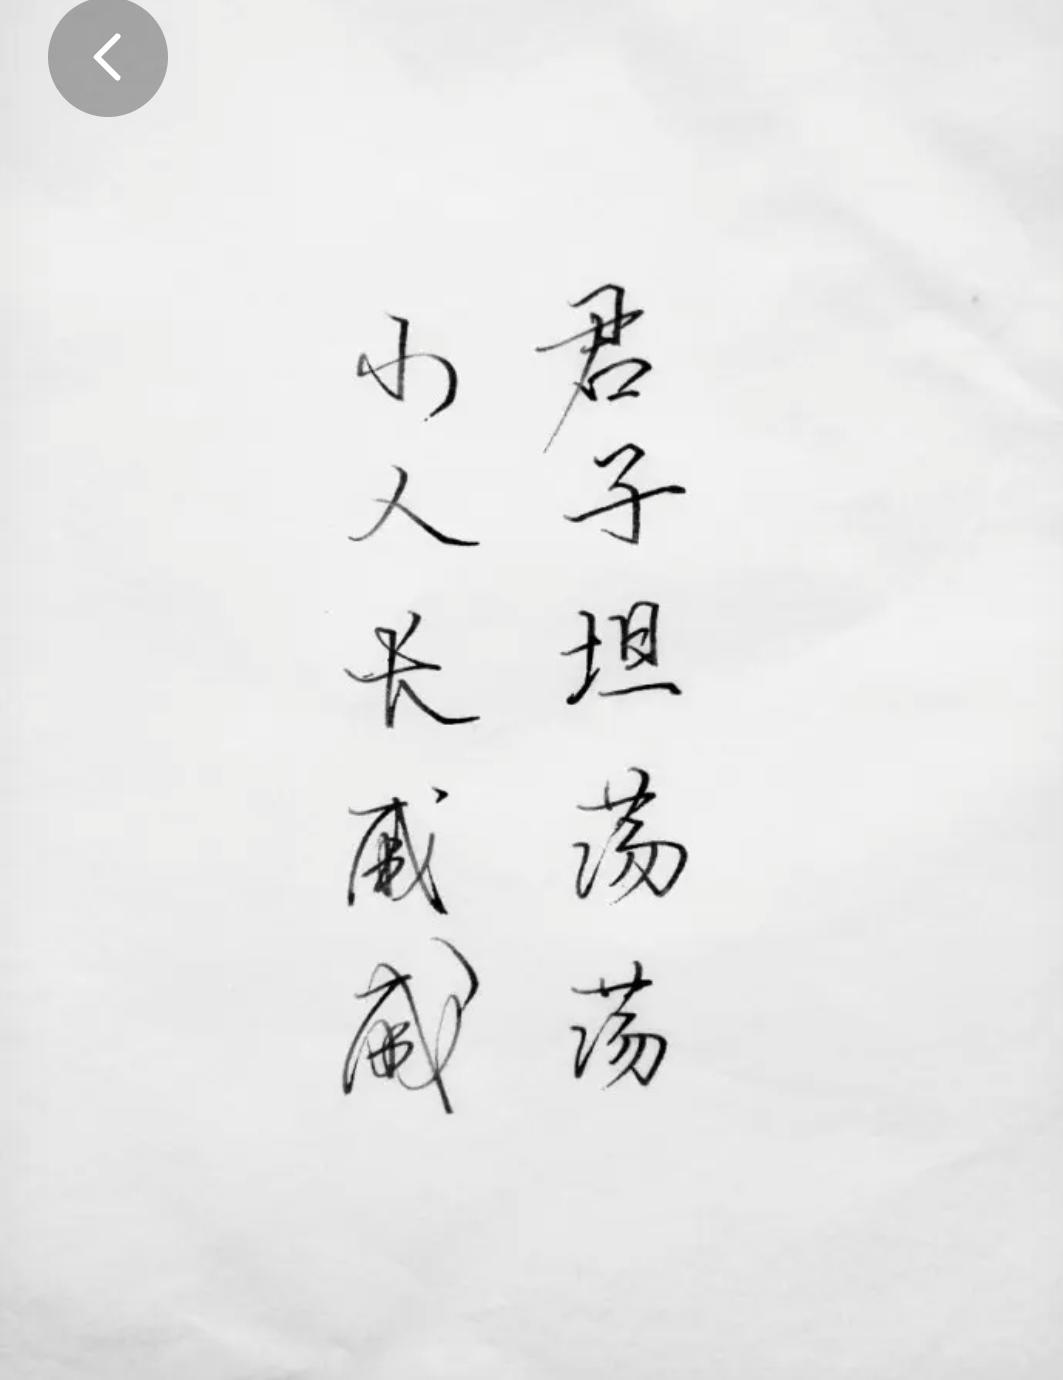 君子坦荡荡
小人长戚戚